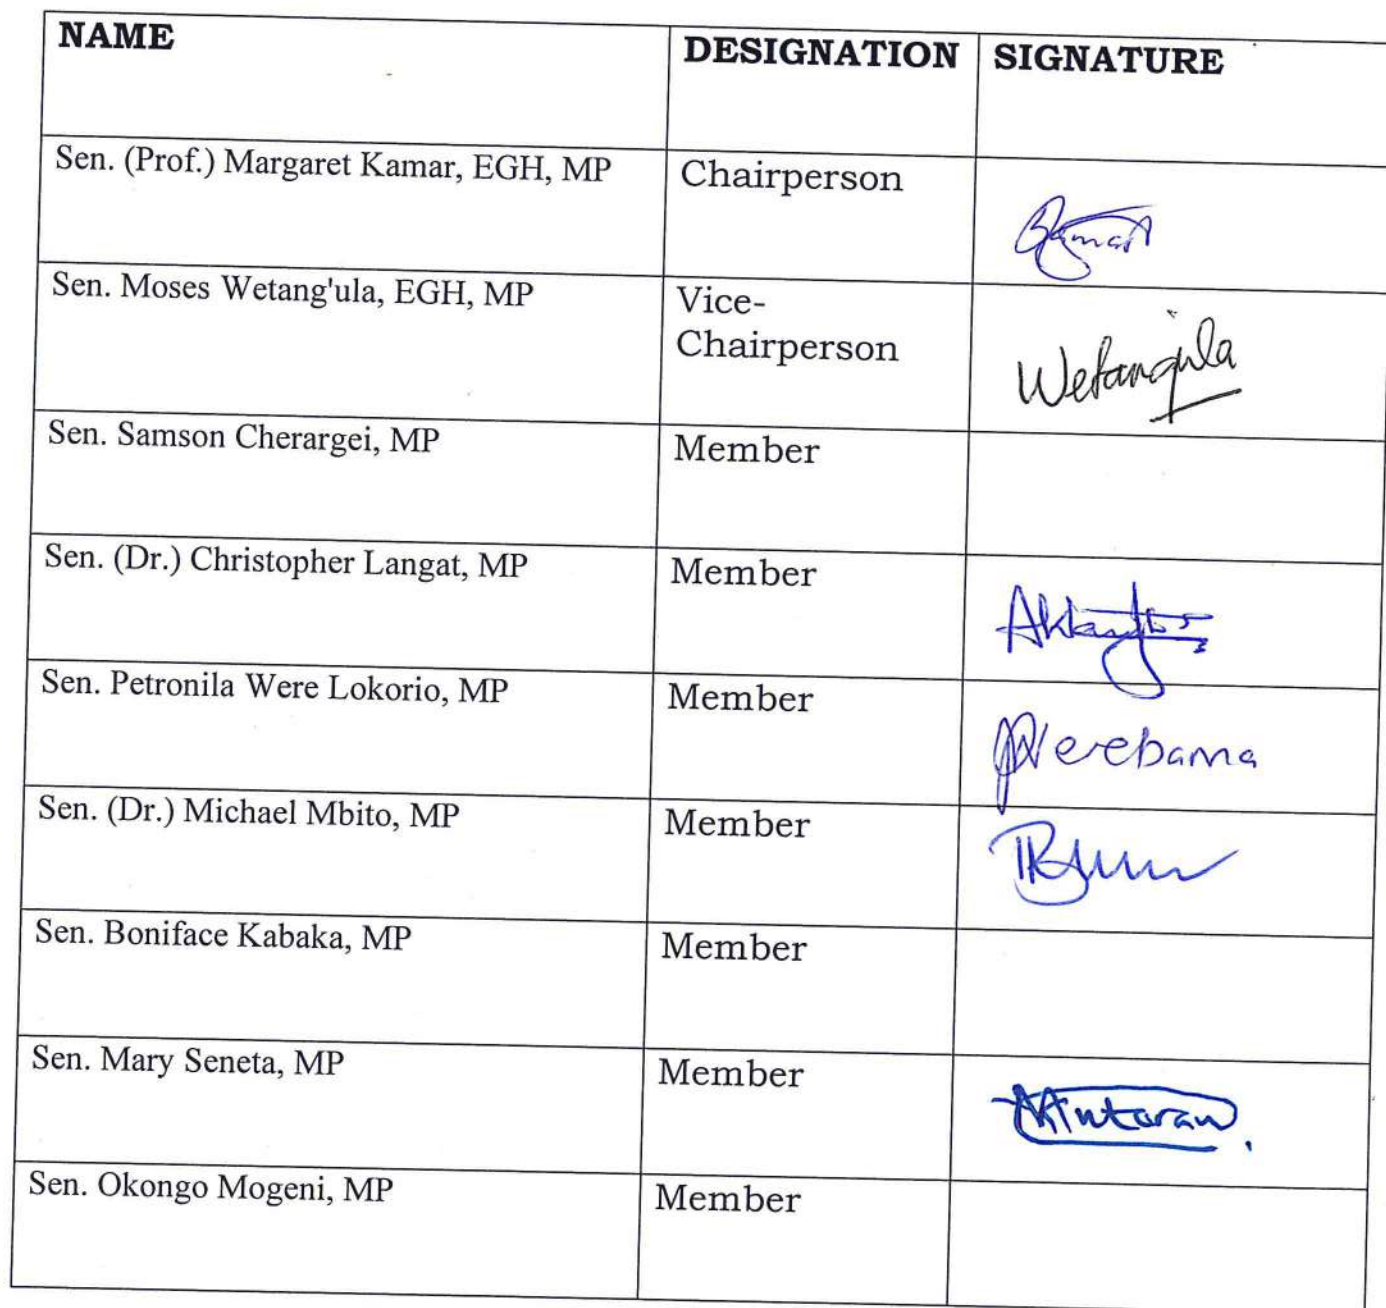 NAME DESIGNATION SIGNATURE
Sen. (Prof.) Margaret Kamar, EGH, MP Chairperson
Sen. Moses Wetang'ula, EGH, MP Vice-
Chairperson Wetangula
Sen. Samson Cherargei, MP Member
Sen. (Dr.) Christopher Langat, MP Member
Sen. Petronila Were Lokorio, MP Member
Sen. (Dr.) Michael Mbito, MP Member
Sen. Boniface Kabaka, MP Member
Sen. Mary Seneta, MP Member
Sen. Okongo Mogeni, MP Member